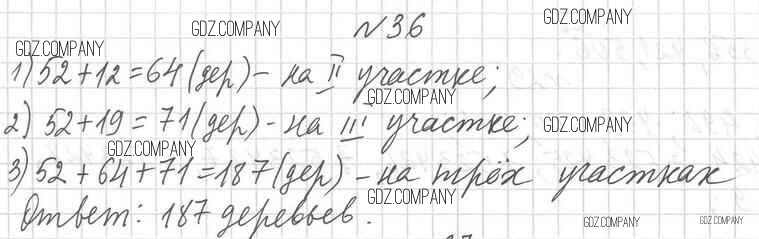 №36
1) 52+12=64(дер) - на II участке;
2) 52+19=71(дер) - на III участке;
3) 52+64+71=187(дер) - на трёх участках
Ответ: 187 деревьев.
GDZ.COMPANY
GDZ.COMPANY
GDZ.COMPANY
GDZ.COMPANY
GDZ.COMPANY
GDZ.COMPANY
GDZ.COMPANY
GDZ.COMPANY
GDZ.COMPANY